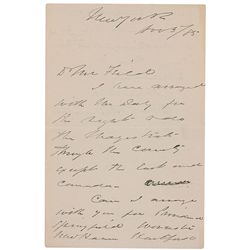 New York
Nov 3/85
D Mr Field
I have arranged
with Mr Daly for
the right to do
the Magistrate
through the Country
except the East and
Canada.
Can I arrange
with you for
Springfield Worcester
New Haven Hartford